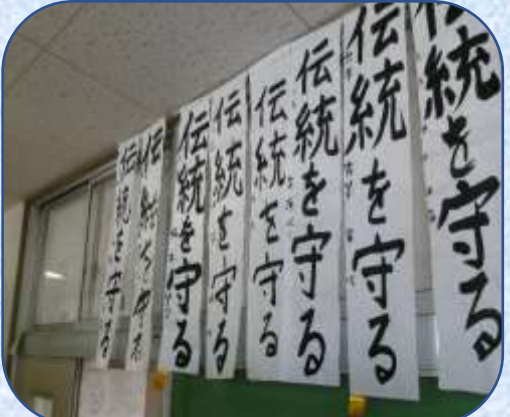 伝統を守る
伝統を守る
伝統を守る
伝統を守る
伝統を守る
伝統を守る
伝統を守る
伝統を守る